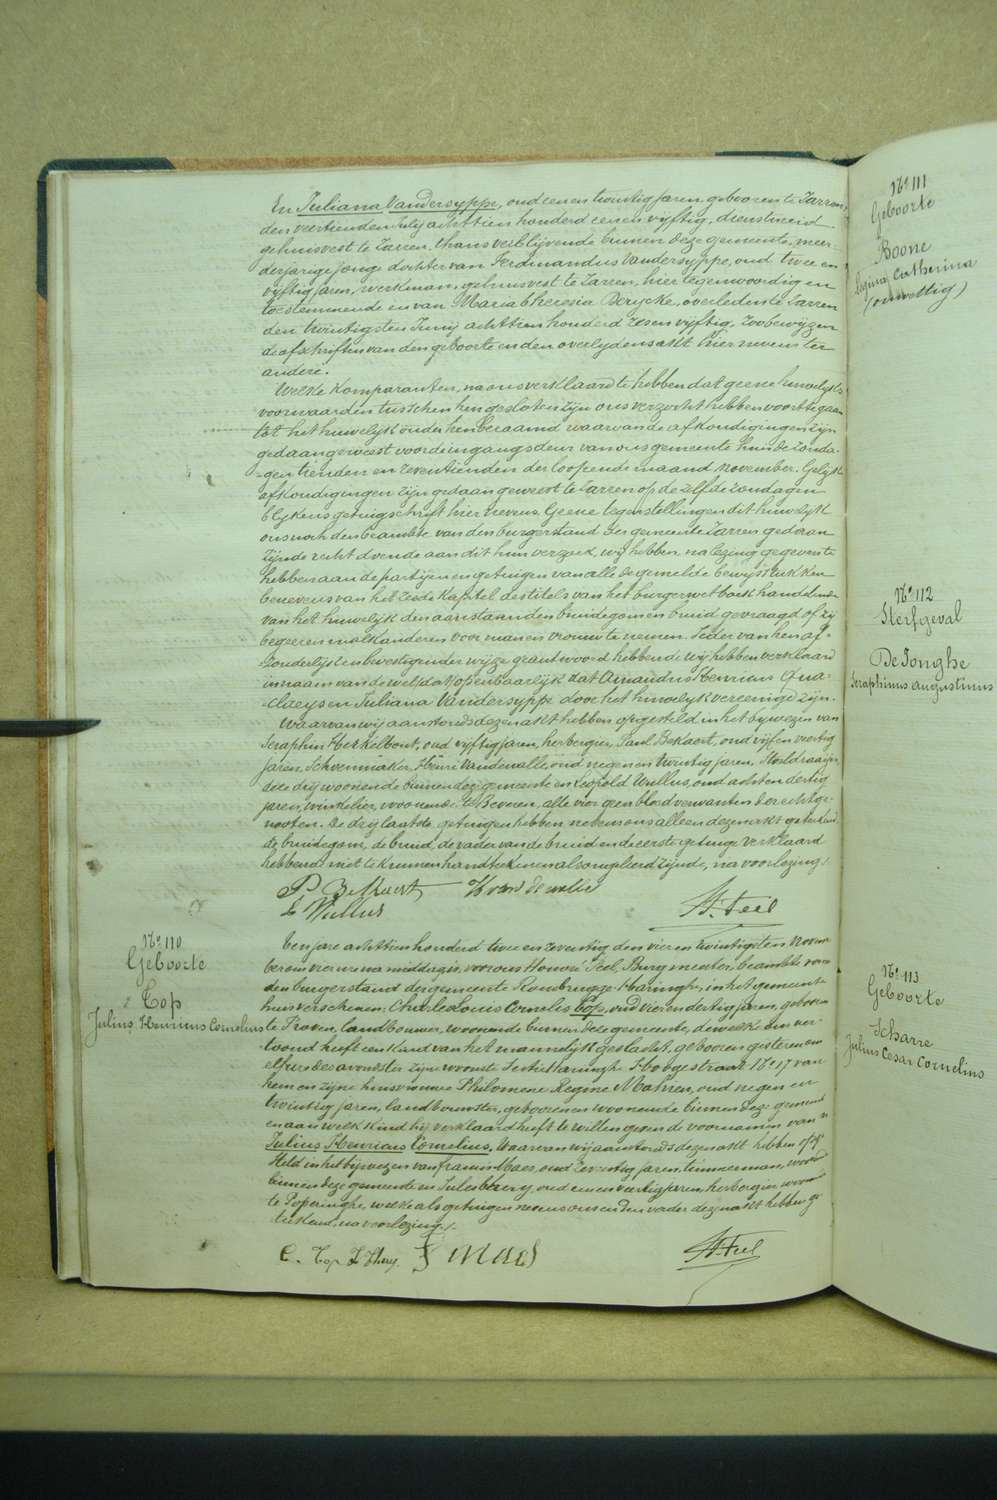 En Juliana Vandersyppe, oud eenen twintig jaren, geboren te Zarren,
den veertienden July achttien honderd eenen vyftig, dienstmeid
gehuisvest te Zarren, thans verblyvende binnen deze gemeente, meer-
derjarige jonge dochter van Ferdinandus Vandersyppe, oud twee en
vyftig jaren, werkman, gehuisvest te Zarren, hier tegenwoordig en
toestemmende en van Maria Theresia Derycke, overleden te Zarren
den twintigsten Juny achttien honderd zesenvyftig, zoo bewyzen
de afschriften van den geboorte en den overlydensakt hier nevens ter
andere.
Welke Komparanten, na ons verklaard te hebben dat geene huwelyks
voorwaarden tusschen hen gesloten zyn ons verzocht hebben voort te gaan
tot het huwelyk onder hen beraamd waarvan de afkondigingen zyn
gedaan geweest voor de ingangsdeur van ons gemeente huis de zonda-
gen tienden en zeventienden der loopende maand november. Gelyke
afkondigingen zyn gedaan geweest te Zarren op de zelfde zondagen
blykens getuigschrift hier nevens. Geene tegenstellingen dit huwelyk
ons noch den beambte van den burgerstand der gemeente Zarren gedaan
zynde recht doende aan dit hun verzoek, wy hebben, na lezing gegeven te
hebben aan de partyen en getuigen van alle de gemelde bewysstukken
benevens van het zesde Kapitel des titels van het burgerwetboek handelende
van het huwelyk den aanstaanden bruidegom en bruid gevraagd of zy
begeeren malkanderen voor man en vrouw te nemen. Ieder van hen af-
zonderlyk en bevestigender wyze geantwoord hebbende wy hebben verklaard
in naam van de wet, dat openbaarlyk dat Amandus Henricus Qua-
claeys en Juliana Vandersyppe door het huwelyk vereenigd zyn.
Waarvan wy aanstonds dezen akt hebben opgesteld in het bywezen van
Seraphin Heskelbout, oud vyftig jaren, herbergier, Paul Bekaert, oud vyfen veertig
jaren, schoenmaker, Henri Vandewalle, oud negen en twintig jaren, Stoeldraaijer,
deze dry woonende binnen deze gemeente en Leopold Wullus, oud achten dertig
jaren, winkelier, woonende te Beveren, alle vier geen bloedverwanten der echtge-
nooten. De dry laatste getuigen hebben nevens ons alleen dezen akt geteekend
de bruidegom, de bruid, de vader van de bruid en de eerste getuige verklaard
hebbende niet te kunnen handteekenen als ongeleerd zynde, na voorlezing.
P Bekaert H vandewalle
L Wullus
H. Feel
N° 110
Geboorte
Top
Julius Henricus Cornelius
Ten jare achttien honderd twee en zeventig den vier en twintigsten Novem
ber om vier ure na middag is, voor ons Honoré Feel, Burgmeester, beambte van
den burgerstand der gemeente Rousbrugge-Haringhe, in het gemeente
huis verschenen: Charles Louis Cornelis Top, oud vier en dertig jaren, geboren
te Proven, landbouwer, woonende binnen deze gemeente, dewelke ons ver-
toond heeft een kind van het mannelyk geslacht, geboren gisteren om
elf ure des avonds ter zyne woonste sectie Haringhe Hoogestraat N° 17 van
hem en zyne huisvrouwe Philomene Regine Mahieu, oud negen en
twintig jaren, landbouwster, geboren en woonende binnen deze gemeente
en aan welk kind hy verklaard heeft te willen geven de voornamen van
Julius Henricus Cornelius. Waarvan wy aanstonds dezen akt hebben opge
steld in het bywezen van francis Maes, oud zeventig jaren, timmerman, woonende
binnen deze gemeente en Jules Thery, oud een en veertig jaren, herbergier, woonende
te Poperinghe, welke als getuigen nevens ons en den vader dezen akt hebben ge
teekend, na voorlezing.
C. Top J Thery F Maes
H. Feel
N° 111
Geboorte
Boone
Regina Catherina
(onwettig)
N° 112
Sterfgeval
De Jonghe
Seraphinus Augustinus
N° 113
Geboorte
Scharre
Julius Cesar Cornelius